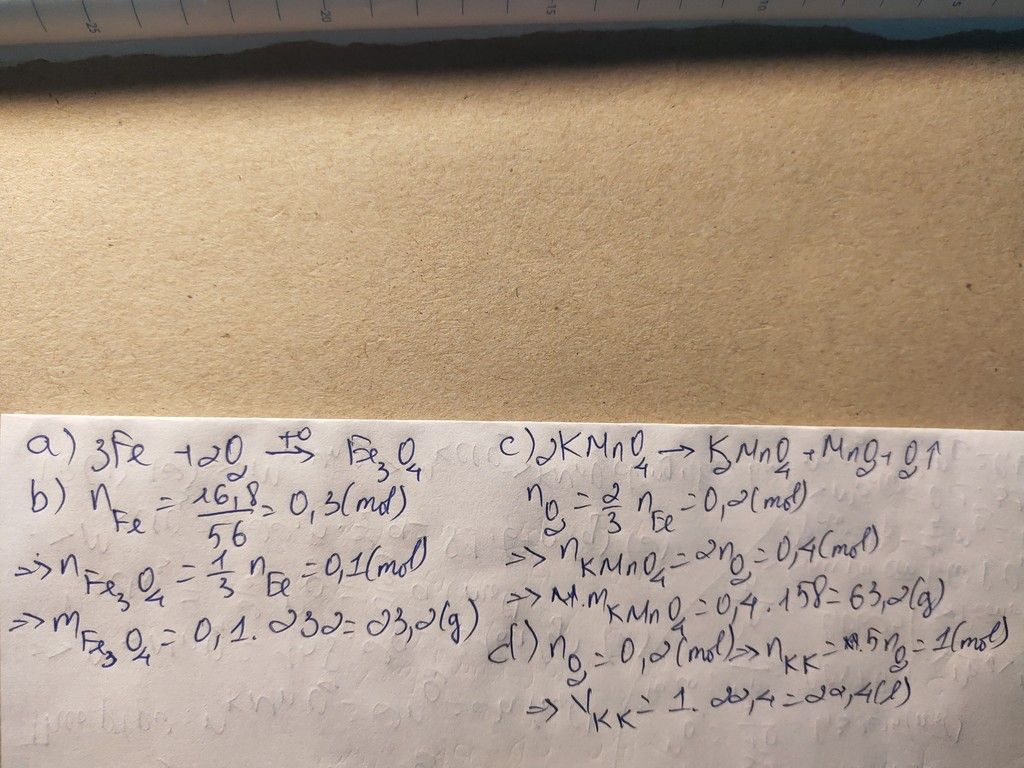 25 20 15 10 5
a) 3Fe + 2O₂ →(t0) Fe₃O₄
b) n_Fe = 16,8/56 = 0,3(mol)
=> n_Fe₃O₄ = 1/3 n_Fe = 0,1(mol)
=> m_Fe₃O₄ = 0,1. 232 = 23,2(g)
c) 2KMnO₄ → K₂MnO₄ + MnO₂ + O₂↑
n_O₂ = 2/3 n_Fe = 0,2(mol)
=> n_KMnO₄ = 2n_O₂ = 0,4(mol)
=> m_KMnO₄ = 0,4 . 158 = 63,2(g)
d) n_O₂ = 0,2(mol) => n_KK = 5n_O₂ = 1(mol)
=> V_KK = 1. 22,4 = 22,4(l)